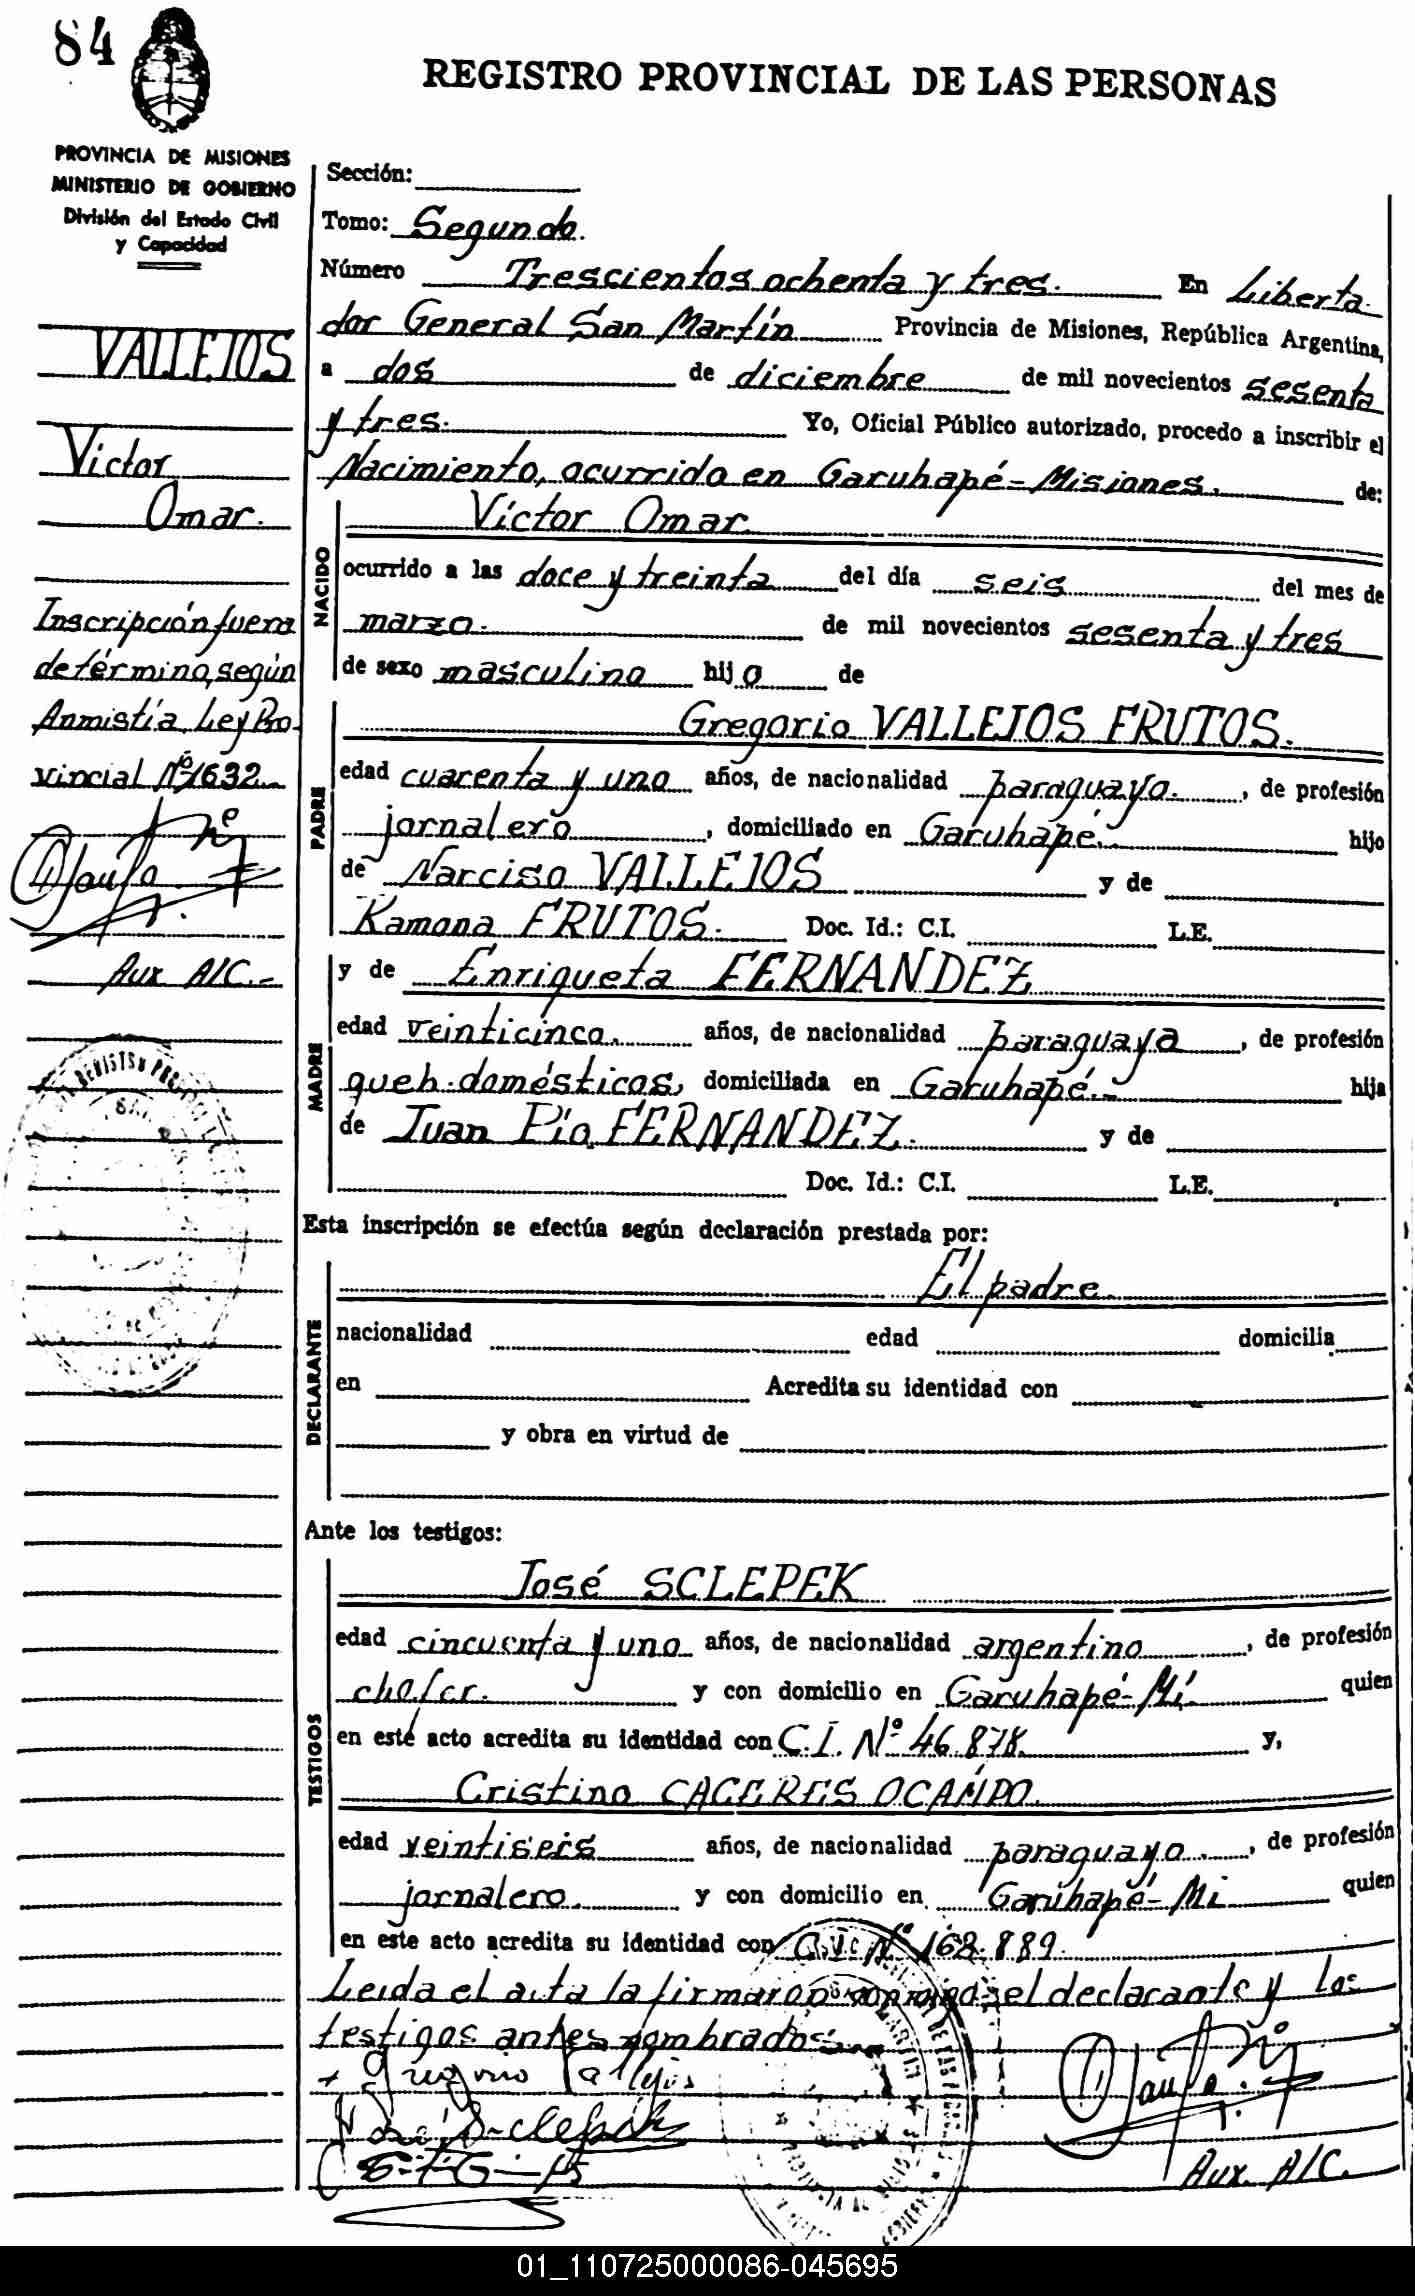 84
REGISTRO PROVINCIAL DE LAS PERSONAS
PROVINCIA DE MISIONES
MINISTERIO DE GOBIERNO
División del Estado Civil
y Capacidad
VALLEJOS
Víctor
Omar.
Inscripción fuera
de término, según
Anmistía Ley Pro-
vincial Nº 1632
Aux. A/C.-
Sección:
Tomo: Segundo.
Número Trescientos ochenta y tres. En Liberta-
dor General San Martín Provincia de Misiones, República Argentina,
a dos de diciembre de mil novecientos sesenta
y tres. Yo, Oficial Público autorizado, procedo a inscribir el
Nacimiento, ocurrido en Garuhapé-Misiones. de:
NACIDO
Víctor Omar.
ocurrido a las doce y treinta del día seis del mes de
marzo. de mil novecientos sesenta y tres
de sexo masculino hijo de
PADRE
Gregorio VALLEJOS FRUTOS.
edad cuarenta y uno años, de nacionalidad paraguayo. , de profesión
jornalero , domiciliado en Garuhapé.- hijo
de Narciso VALLEJOS y de
Ramona FRUTOS. Doc. Id.: C.I. L.E.
MADRE
y de Enriqueta FERNANDEZ
edad veinticinco. años, de nacionalidad paraguaya , de profesión
queh. domésticos, domiciliada en Garuhapé.- hija
de Juan Pío FERNANDEZ. y de
Doc. Id.: C.I. L.E.
Esta inscripción se efectúa según declaración prestada por:
DECLARANTE
El padre.
nacionalidad edad domicilia
en Acredita su identidad con
y obra en virtud de
Ante los testigos:
TESTIGOS
José SCLEPEK
edad cincuenta y uno años, de nacionalidad argentino , de profesión
chofer. y con domicilio en Garuhapé-Mi. quien
en este acto acredita su identidad con C.I. Nº 46.878. y,
Cristino CACERES OCAMPO.
edad veintiseis años, de nacionalidad paraguayo. , de profesión
jornalero. y con domicilio en Garuhapé-Mi quien
en este acto acredita su identidad con Nº 168.889.
Leida el acta la firmaron conmigo el declarante y los
testigos antes nombrados.
Gregorio Vallejos
José Sclepek
Aux. A/C.
01_110725000086-045695